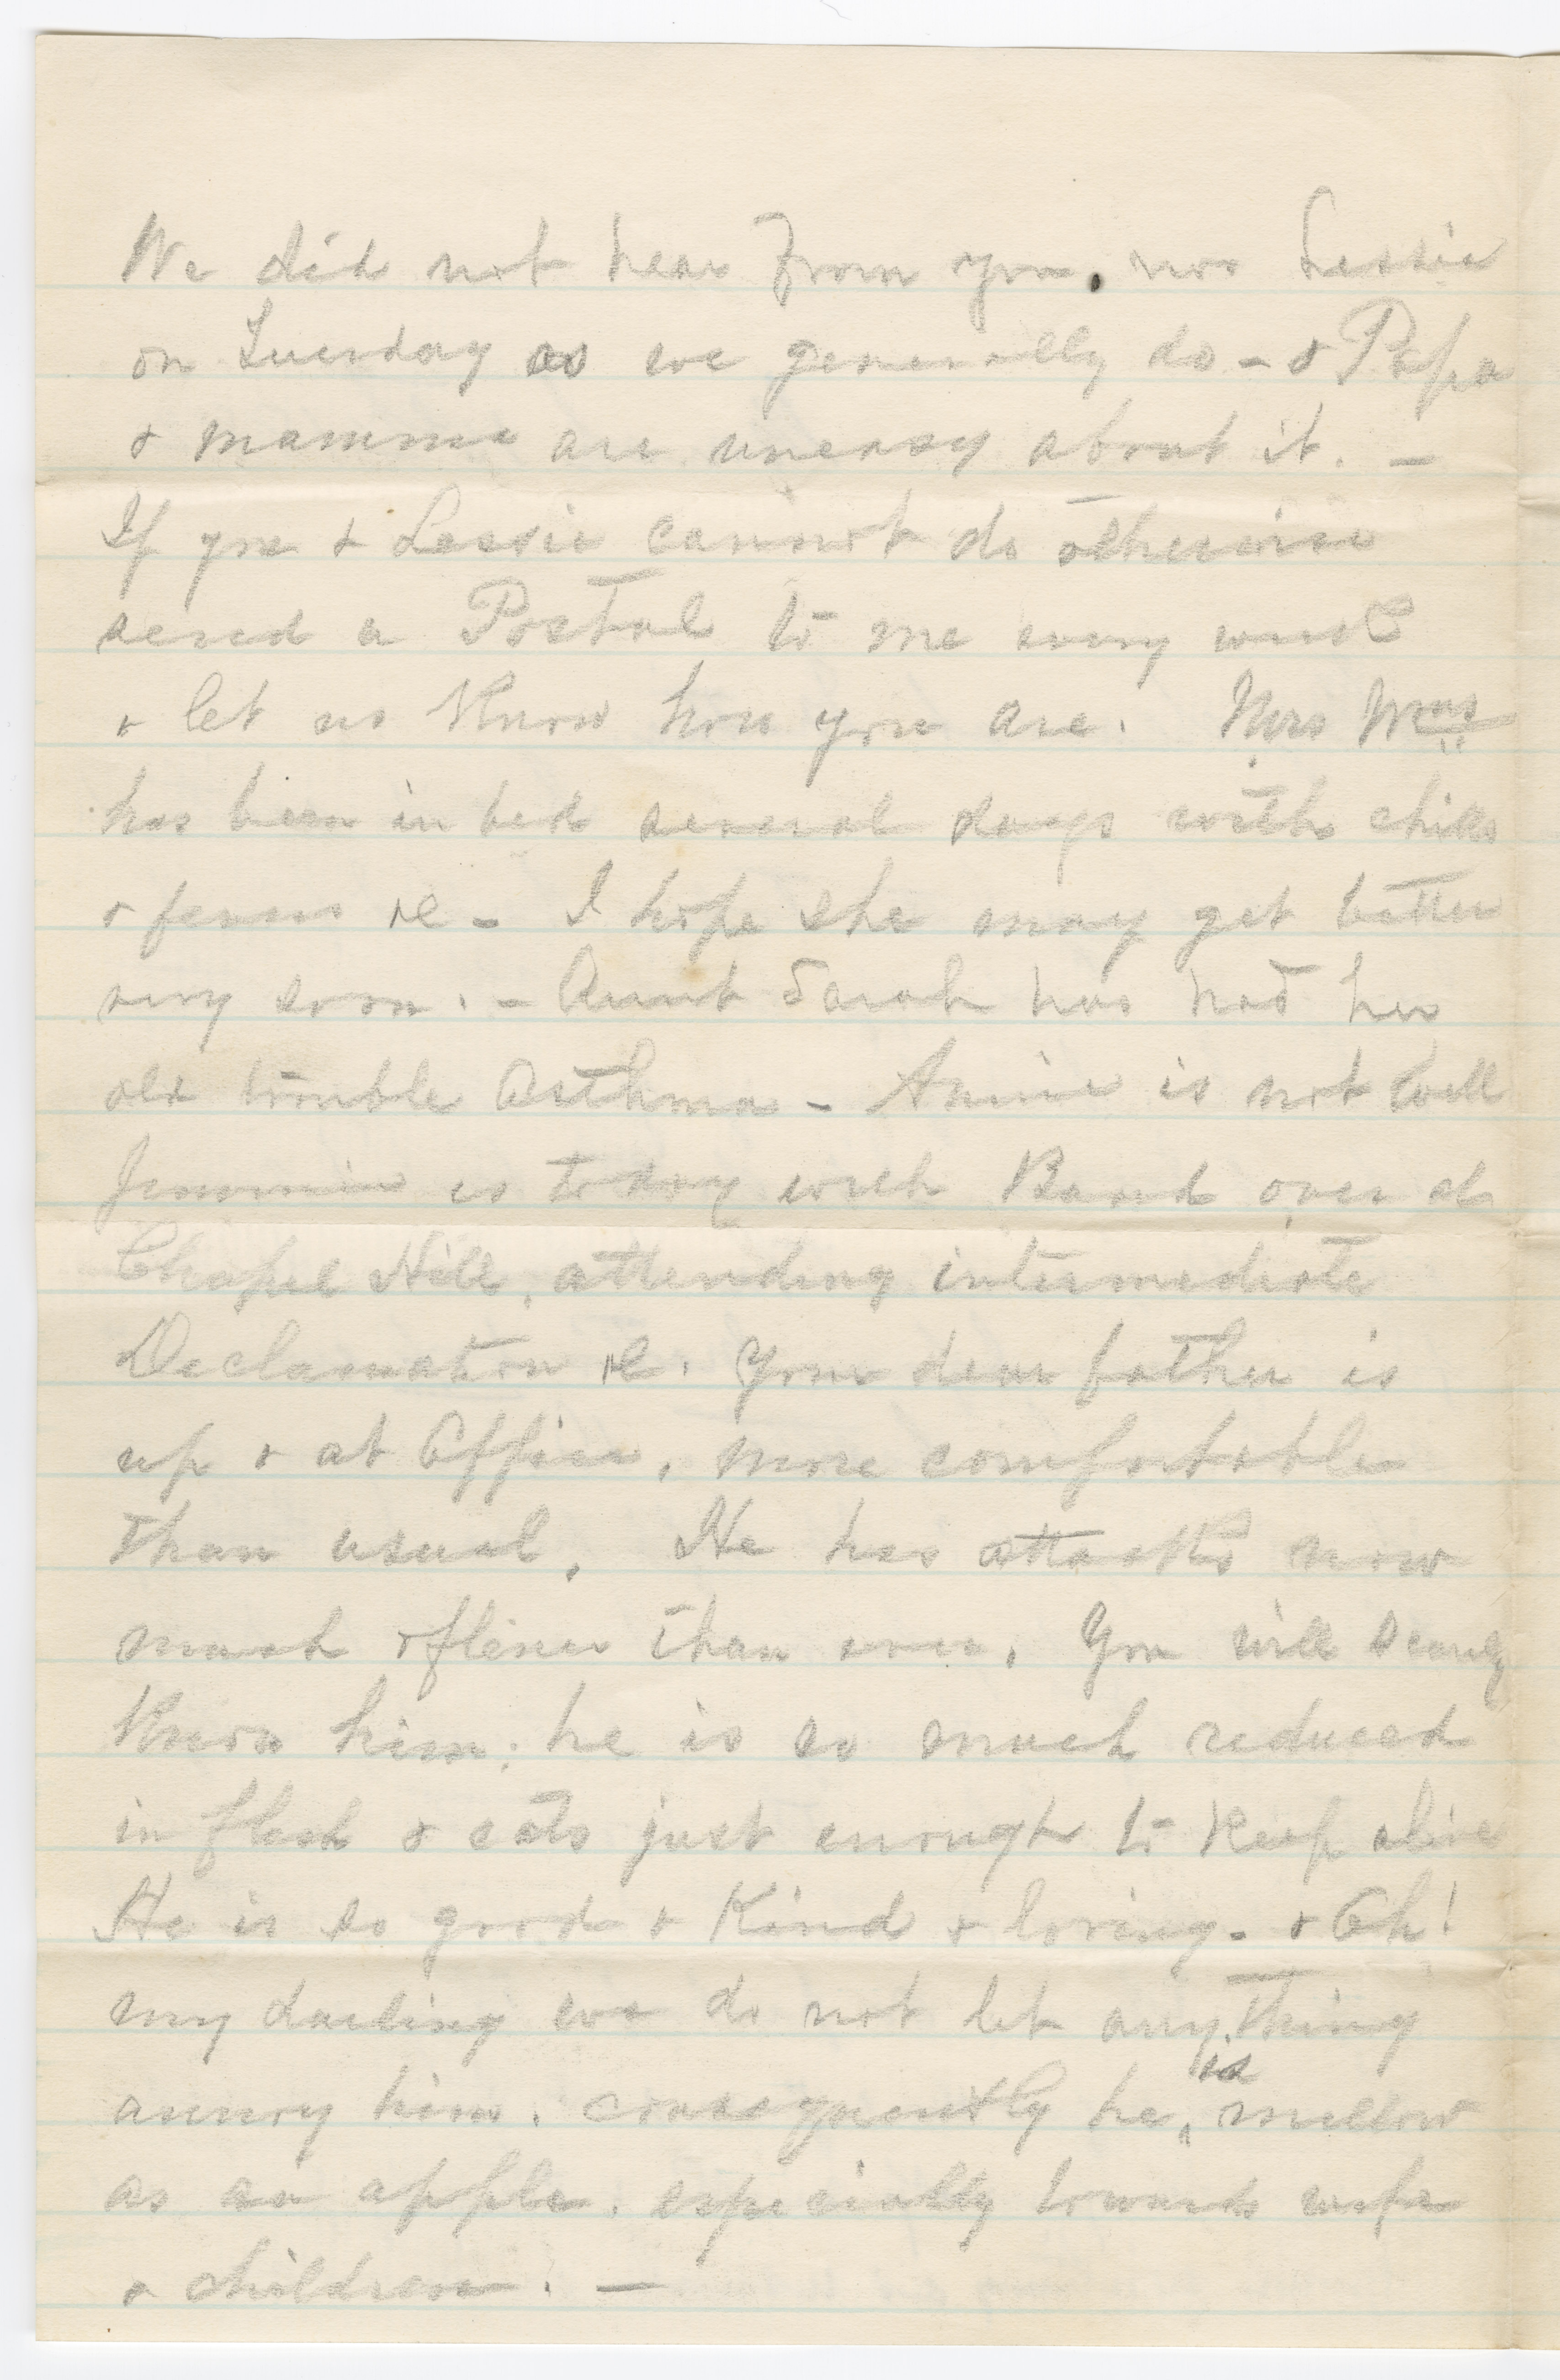 We did not hear from you, nor Lessie
on Tuesday as we generally do - & Papa
& mamma are uneasy about it. -
If you & Lessie cannot do otherwise
send a Postal to me every week
& let us know how you are. Mrs Wms
has been in bed several days with chills
& fevers &c - I hope she may get better
very soon. - Aunt Sarah has had her
old trouble Asthma - Annie is not well
Jimmie is today with Band over at
Chapel Hill, attending intermediate
Declamation &c. Your dear father is
up & at Office, more comfortable
than usual. He has attacks now
much oftener than ever. You will scarcely
know him, he is so much reduced
in flesh & eats just enough to keep alive
He is so good & kind & loving - & Oh!
my darling we do not let any thing
annoy him. consequently he is mellow
as an apple. especially towards wife
& children. -